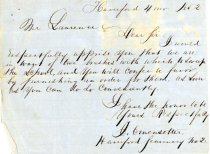 Hanford 4 mo No 2
Mr Lawrence
Dear Sir I would
respectfully apprise you that we are
in want of two brushes with which to sweep
the School, and you will confer a favor
by furnishing an order for them as soon
as you can to do Conveniently
I have the honor to be
Yours Respectfully
J.
Hanford No 2.